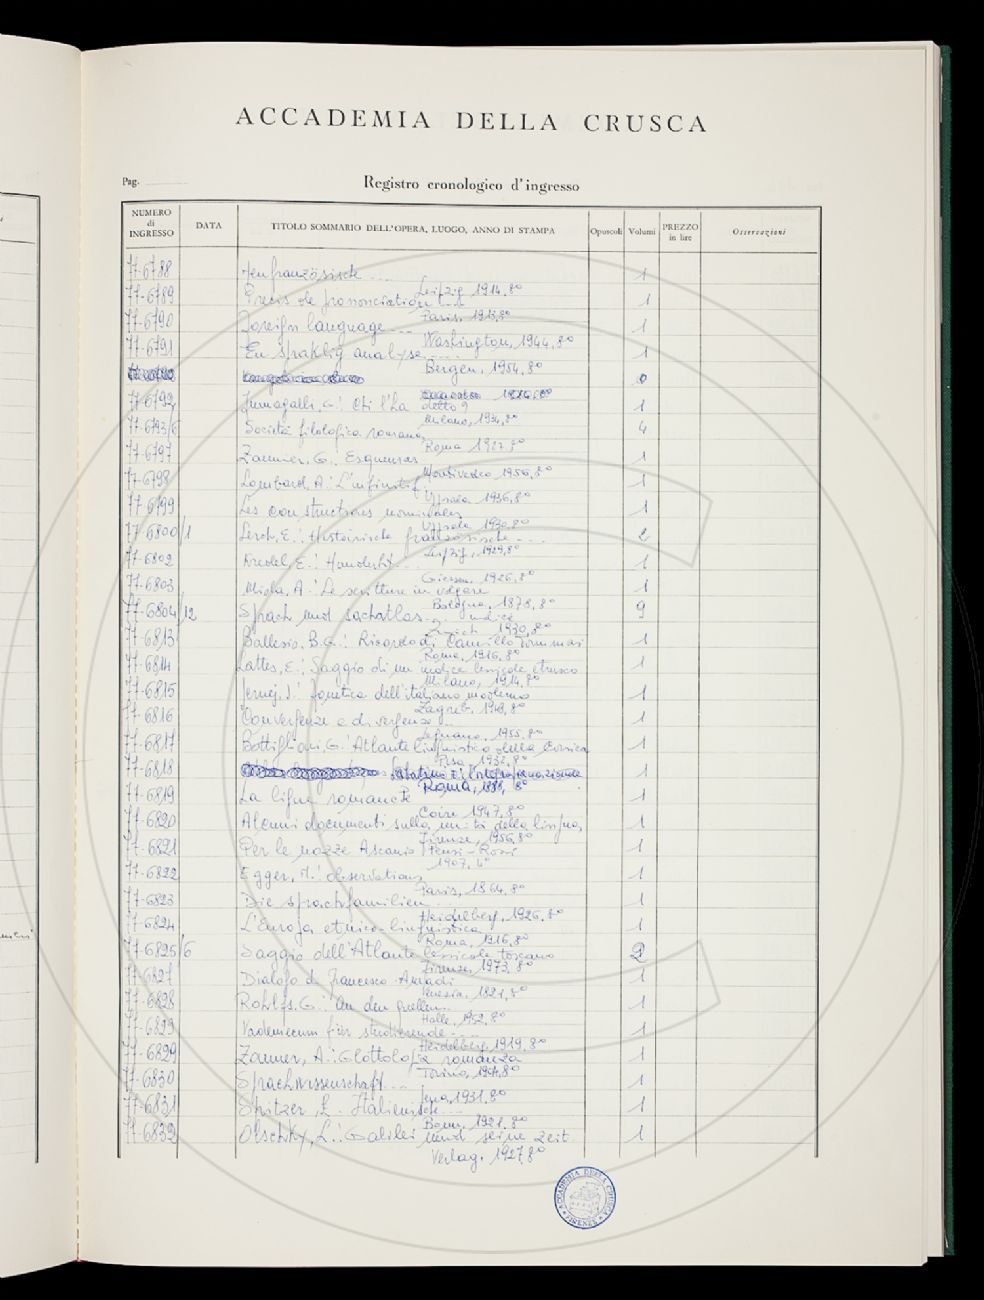 ACCADEMIA DELLA CRUSCA
Pag.
Registro cronologico d'ingresso
NUMERO di INGRESSO DATA TITOLO SOMMARIO DELL'OPERA, LUOGO, ANNO DI STAMPA Opuscoli Volumi PREZZO in lire Osservazioni
77-6788 Leipzig 1914, 8° 1
77-6789 Précis de prononciation Paris, 1913, 8° 1
77-6790 Foreign language ... Washington, 1944, 8° 1
77-6791 En språklig analyse ... Bergen, 1954, 8° 1
77-6792 Fumagalli, G.: Chi l'ha detto? Milano, 1934, 8° 1
77-6793/6 Società filologica romana, Roma 1927, 8° 4
77-6797 Zannier, G.: Esquemas Montivedeo 1956, 8° 1
77-6798 Lombard, A.: L'infinitif Uppsala 1936, 8° 1
77-6799 Les constructions nominales Uppsala 1930, 8° 1
77-6800/1 Lerch, E.: Historische französische ... Leipzig, 1929, 8° 2
77-6802 Giessen, 1926, 8° 1
77-6803 Miola, A.: Le scritture in volgare Bologna, 1878, 8° 1
77-6804/12 Sprach und sachatlas ... indice Zürich 1930, 8° 9
77-6813 Ballerio, B.G.: Ricordo di Camillo Tommasi Roma, 1916, 8° 1
77-6814 Lattes, E.: Saggio di un indice lessicale etrusco Milano, 1914, 8° 1
77-6815 Jernej, J.: fonetica dell'italiano moderno Zagreb, 1948, 8° 1
77-6816 Convergenze e divergenze ... Legnano, 1955, 8° 1
77-6817 Bottiglioni, G.: Atlante linguistico della Corsica Pisa, 1932, 8° 1
77-6818 Roma, 1889, 8° 1
77-6819 La ligna romanche Coire 1947, 8° 1
77-6820 Alcuni documenti sulla unità della lingua, Firenze, 1956, 8° 1
77-6821 Per le nozze Ascanio Tensi-Rossi 1907, 4° 1
77-6822 Egger, M.: observations Paris, 1864, 8° 1
77-6823 Die sprachfamilien ... Heidelberg, 1926, 8° 1
77-6824 L'Europa etnico-linguistica Roma, 1916, 8° 1
77-6825/6 Saggio dell'Atlante lessicale toscano Firenze, 1973, 8° 2
77-6827 Dialogo di Francesco Amadi Venezia, 1821, 8° 1
77-6828 Rohlfs, G.: An den quellen ... Halle, 1952, 8° 1
77-6829 Vademecum für studierende ... Heidelberg, 1919, 8° 1
77-6829 Zauner, A.: Glottologia romanza Torino, 1904, 8° 1
77-6830 Sprachwissenschaft ... Jena, 1931, 8° 1
77-6831 Spitzer, L. Italienische ... Bonn, 1921, 8° 1
77-6832 Olschky, L.: Galilei und seine Zeit Verlag, 1927, 8° 1
ACCADEMIA DELLA CRUSCA FIRENZE